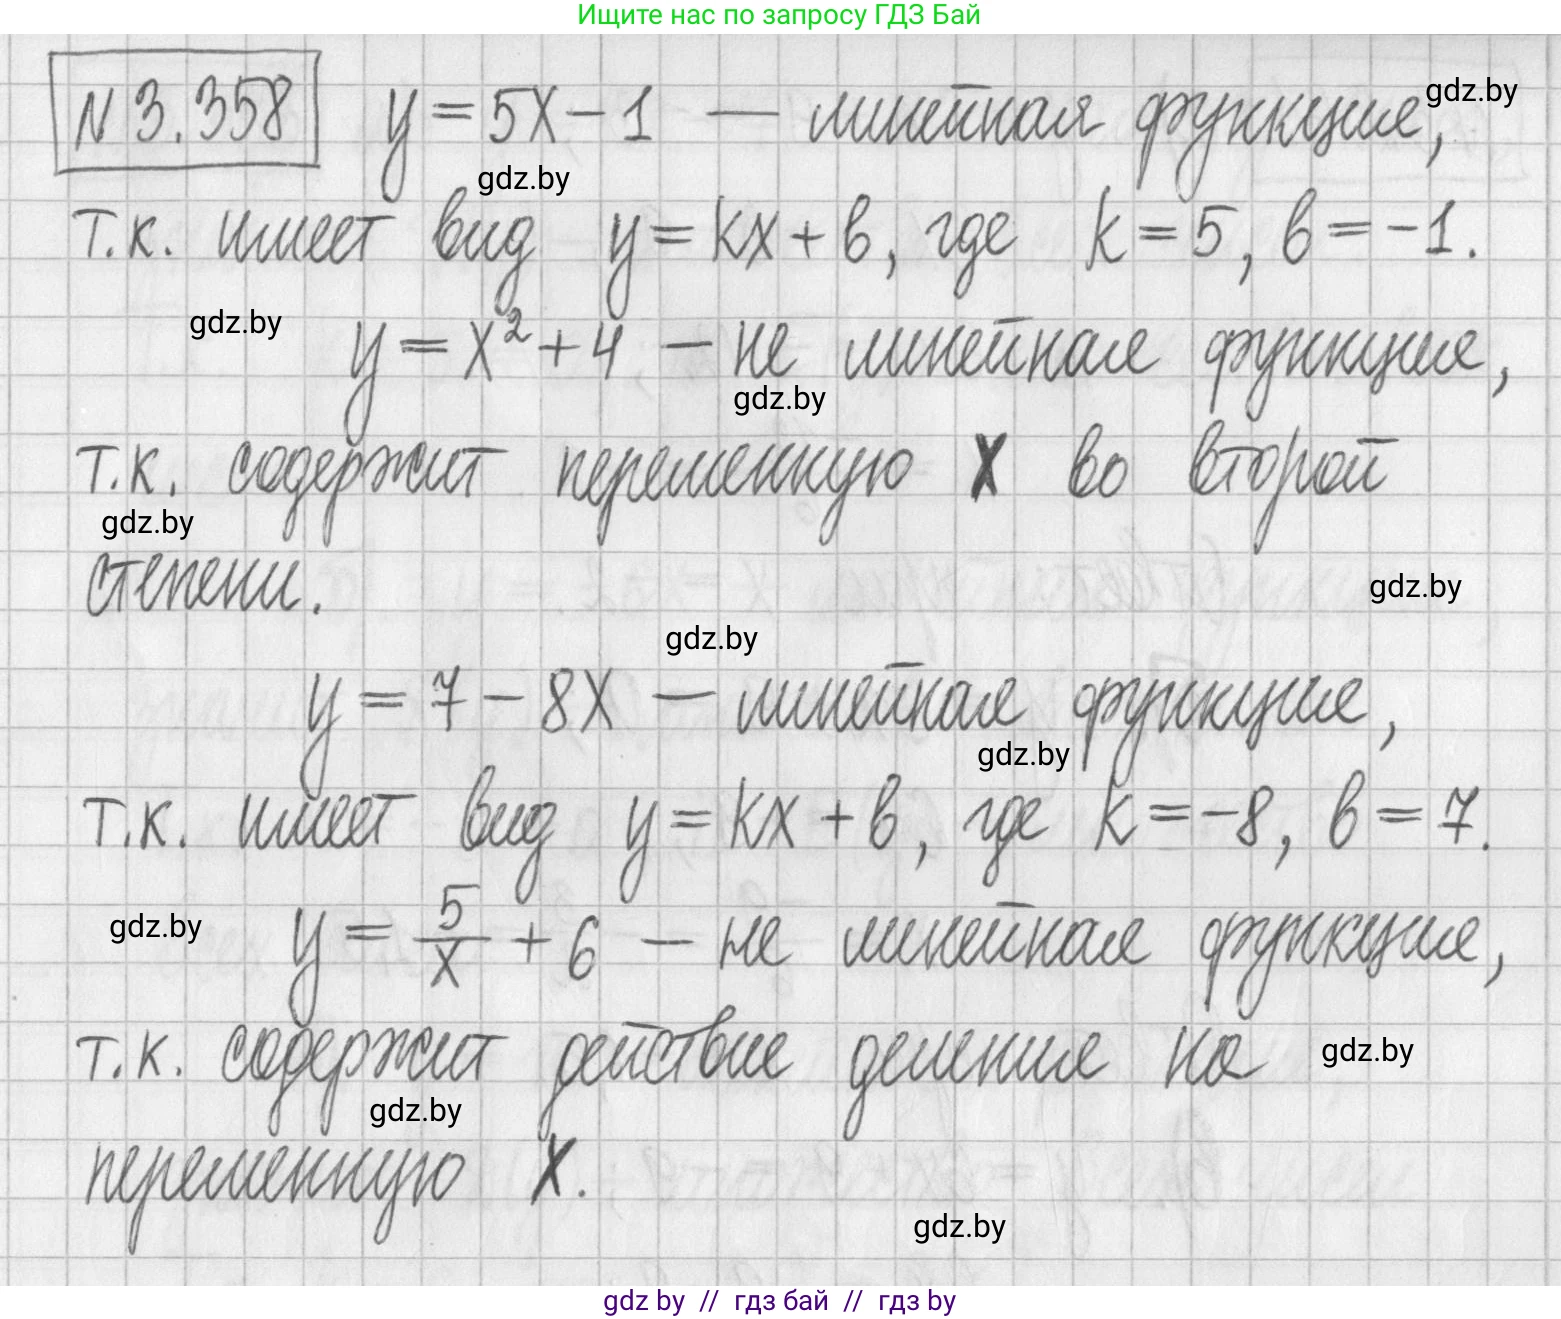 Ищите нас по запросу ГДЗ Бай
N 3.358 y = 5x - 1 — линейная функция, gdz.by
gdz.by
т.к. имеет вид y = kx + b, где k = 5, b = -1.
gdz.by
y = x² + 4 — не линейная функция,
gdz.by
т.к. содержит переменную x во второй
gdz.by
степени. gdz.by
gdz.by
y = 7 - 8x — линейная функция,
gdz.by
т.к. имеет вид y = kx + b, где k = -8, b = 7.
gdz.by y = 5/x + 6 — не линейная функция,
т.к. содержит действие деления на gdz.by
gdz.by
переменную x.
gdz.by
gdz by // гдз бай // гдз by